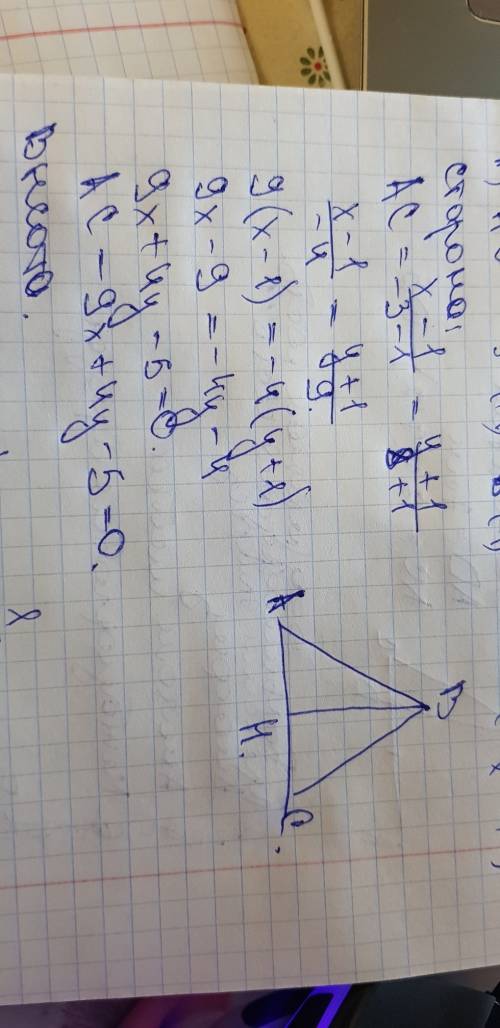 сторона:
AC = \frac{x-1}{-3-1} = \frac{y+1}{8+1}
\frac{x-1}{-4} = \frac{y+1}{9}.
9(x-1) = -4(y+1)
9x-9 = -4y-4
9x+4y-5=0.
AC - 9x+4y-5=0.
Высота.
B
A
H.
C.